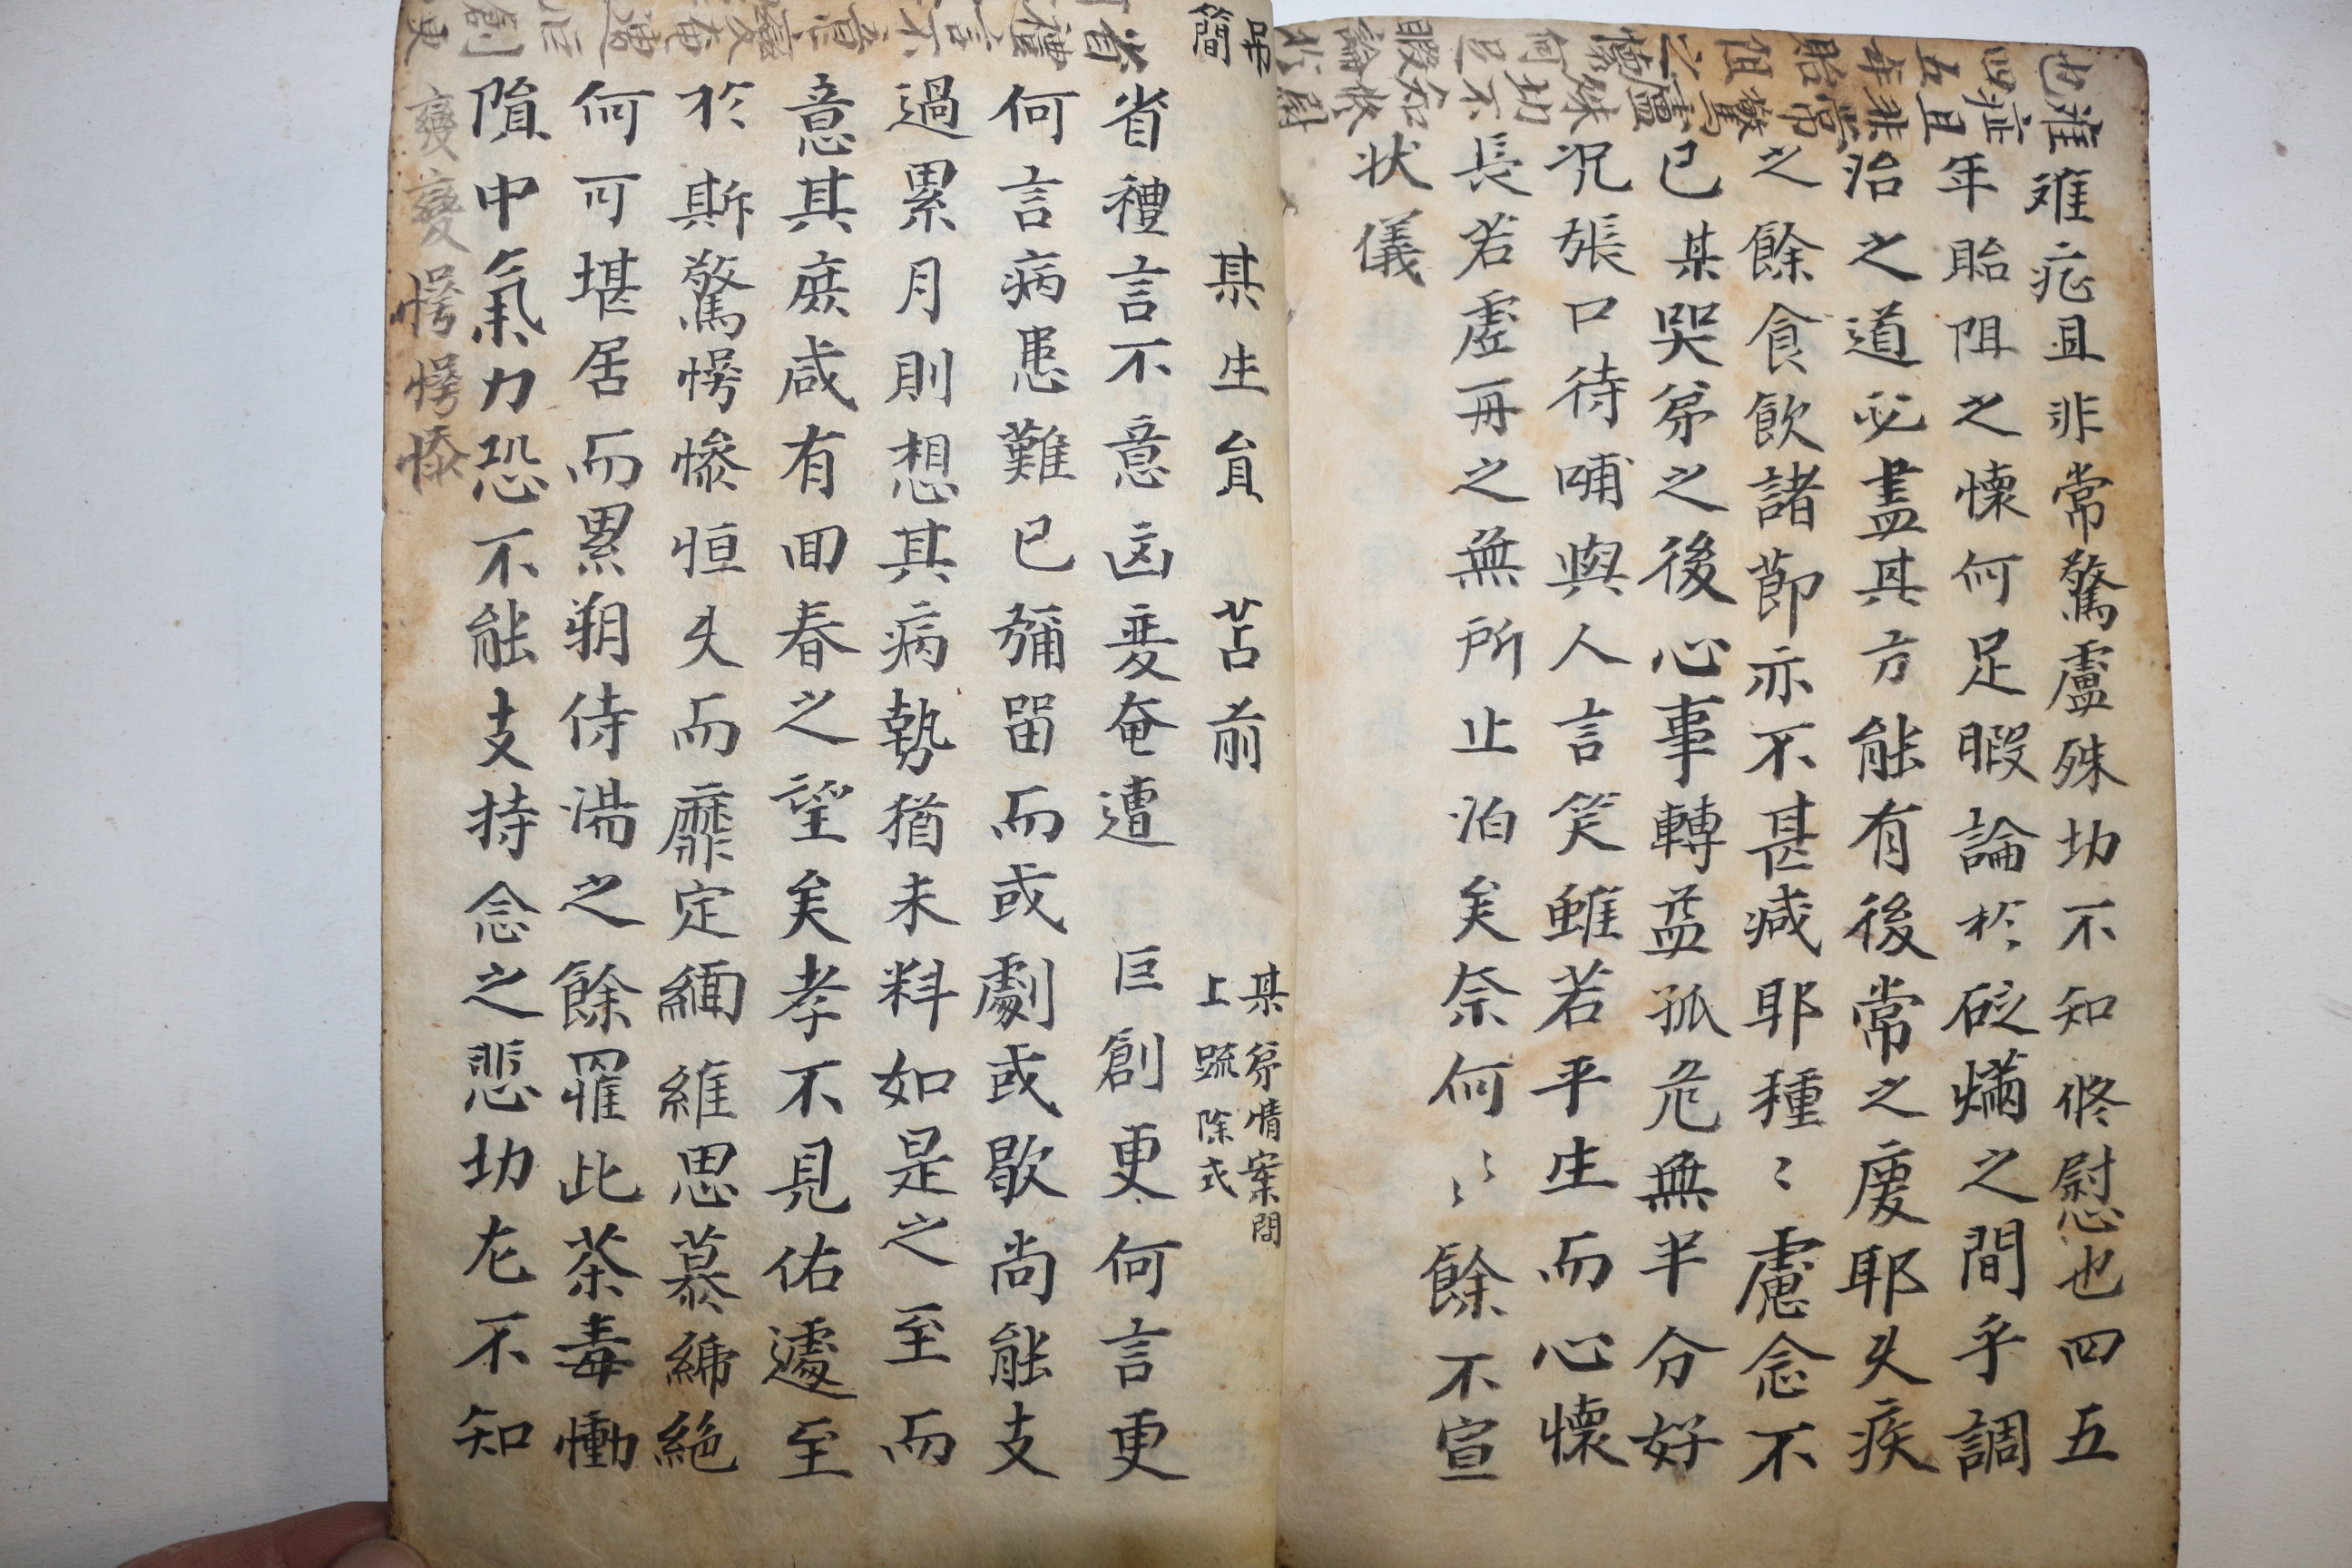 难症且非常驚慮殊功不知俻慰也四五
年貽阻之懐何足暇論於砭焫之間乎調
治之道必盡其方能有後常之慶耶夫疾
之餘食飲諸節亦不甚减耶種〻慮念不
已某哭弟之後心事轉益孤危無半分好
况張口待哺與人言笑雖若平生而心懐
長若虗舟之無所止泊矣奈何〻〻餘不宣
状儀
吊簡
某生員 苫前 某弟情案間
上疏除式
省禮言不意凶變奄遭 巨創更何言更
何言病患難已彌留而或劇或歇尚能支
過累月則想其病勢猶未料如是之至而
意其庶咸有回春之望矣孝不見佑遽至
於斯驚愕慘怛久而靡定緬維思慕締絶
何可堪居而累朔侍湯之餘罹此荼毒慟
隕中氣力恐不能支持念之悲功尤不知
變變愕愕慘